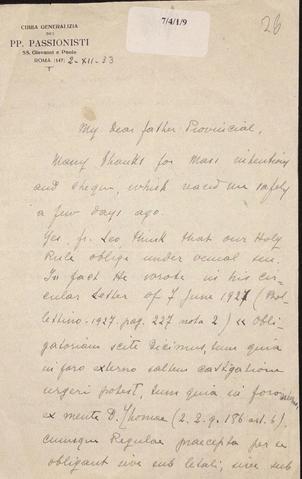 CURIA GENERALIZIA
DEI
PP. PASSIONISTI
SS. Giovanni e Paolo
ROMA (147) 2-XII-33
7/4/1/9
26
My dear Father Provincial,
Many thanks for Mass intention
and cheque, which reached me safely
a few days ago.
Yes, fr. Leo think that our Holy
Rule oblige under venial sin.
In fact He wrote in his cir-
cular Letter of 7 June 1927 (Bol-
lettino-1927-pag. 227 nota 2) « Obli-
gatoriam scite dicimus, tum quia
in foro externo saltem castigatione
urgeri potest, tum quia in foro
ex mente D. Thomae (2. 2. q. 186 art. 6),
cumque Regulae praecepta per se
obligant sive sub letali, sive sub